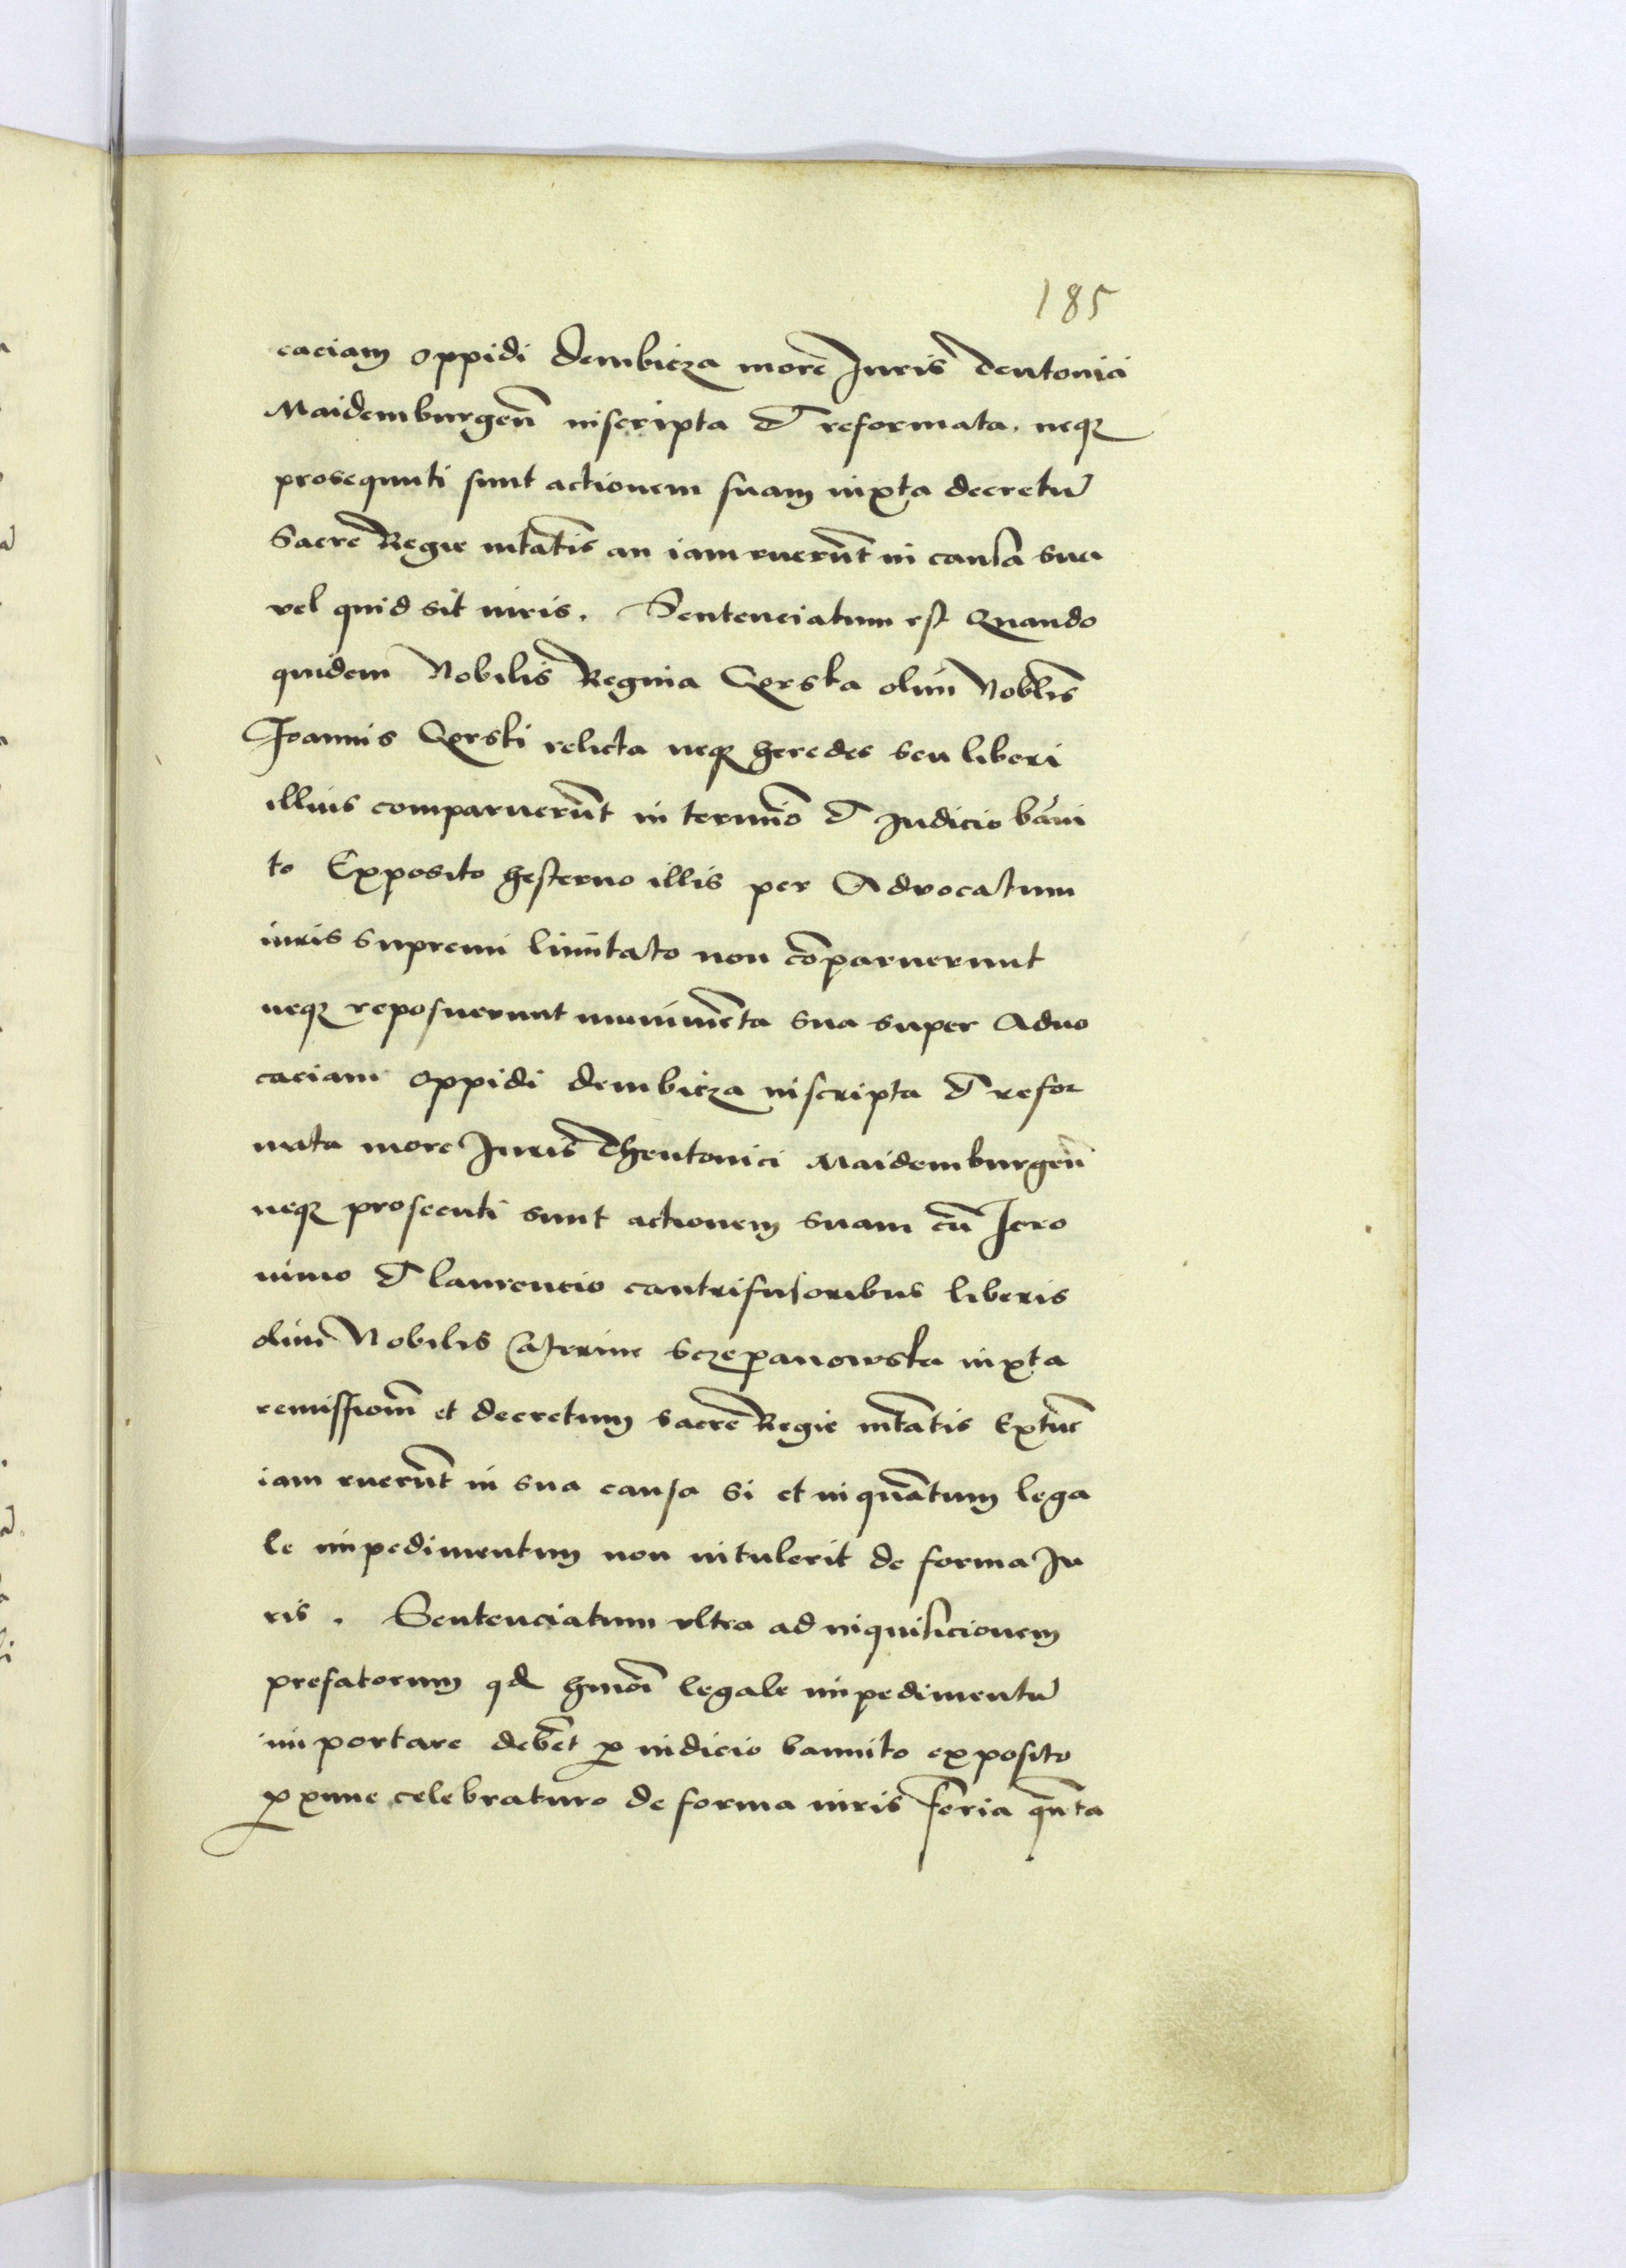 185
caciam oppidi Dembicza more Iuris Deutonici
Maidemburgen̄ inscripta et reformata. neqȝ
prosequuti sunt actionem suam iuxta decretū
Sacre Regie mtātis an iam ruerūt in causa sua
vel quid sit iuris. Sentenciatum est Quando
quidem Nobilis Regina Gorska olim Nobłis
Joannis Gorski relicta neqȝ heredes seu liberi
illius comparuerūt in termīo et Iudicio bāni
to Exposito hesterno illis per Advocatum
iuris supremi limitato non cōparuerunt
neqȝ reposuerunt munimēta sua super Aduo
caciam oppidi dembicza inscripta et refor
mata more Iuris Theutonici Maidemburgen̄
neqȝ prosecuti sunt actionem suam cū Iero
nimo et laurencio cantrifusoribus liberis
olim Nobilis Caterine Sczepanowska iuxta
remissionē et decretum sacre Regie mtātis Extūc
iam ruerūt in sua causa si et in quātum lega
le impedimentum non intulerit de forma Iu
ris. Sentenciatum vltra ad inquisicionem
prefatorum qd hmōi legale impedimentū
importare debēt ꝓ iudicio bannito exposito
ꝓxime celebraturo de forma iuris feria qūta